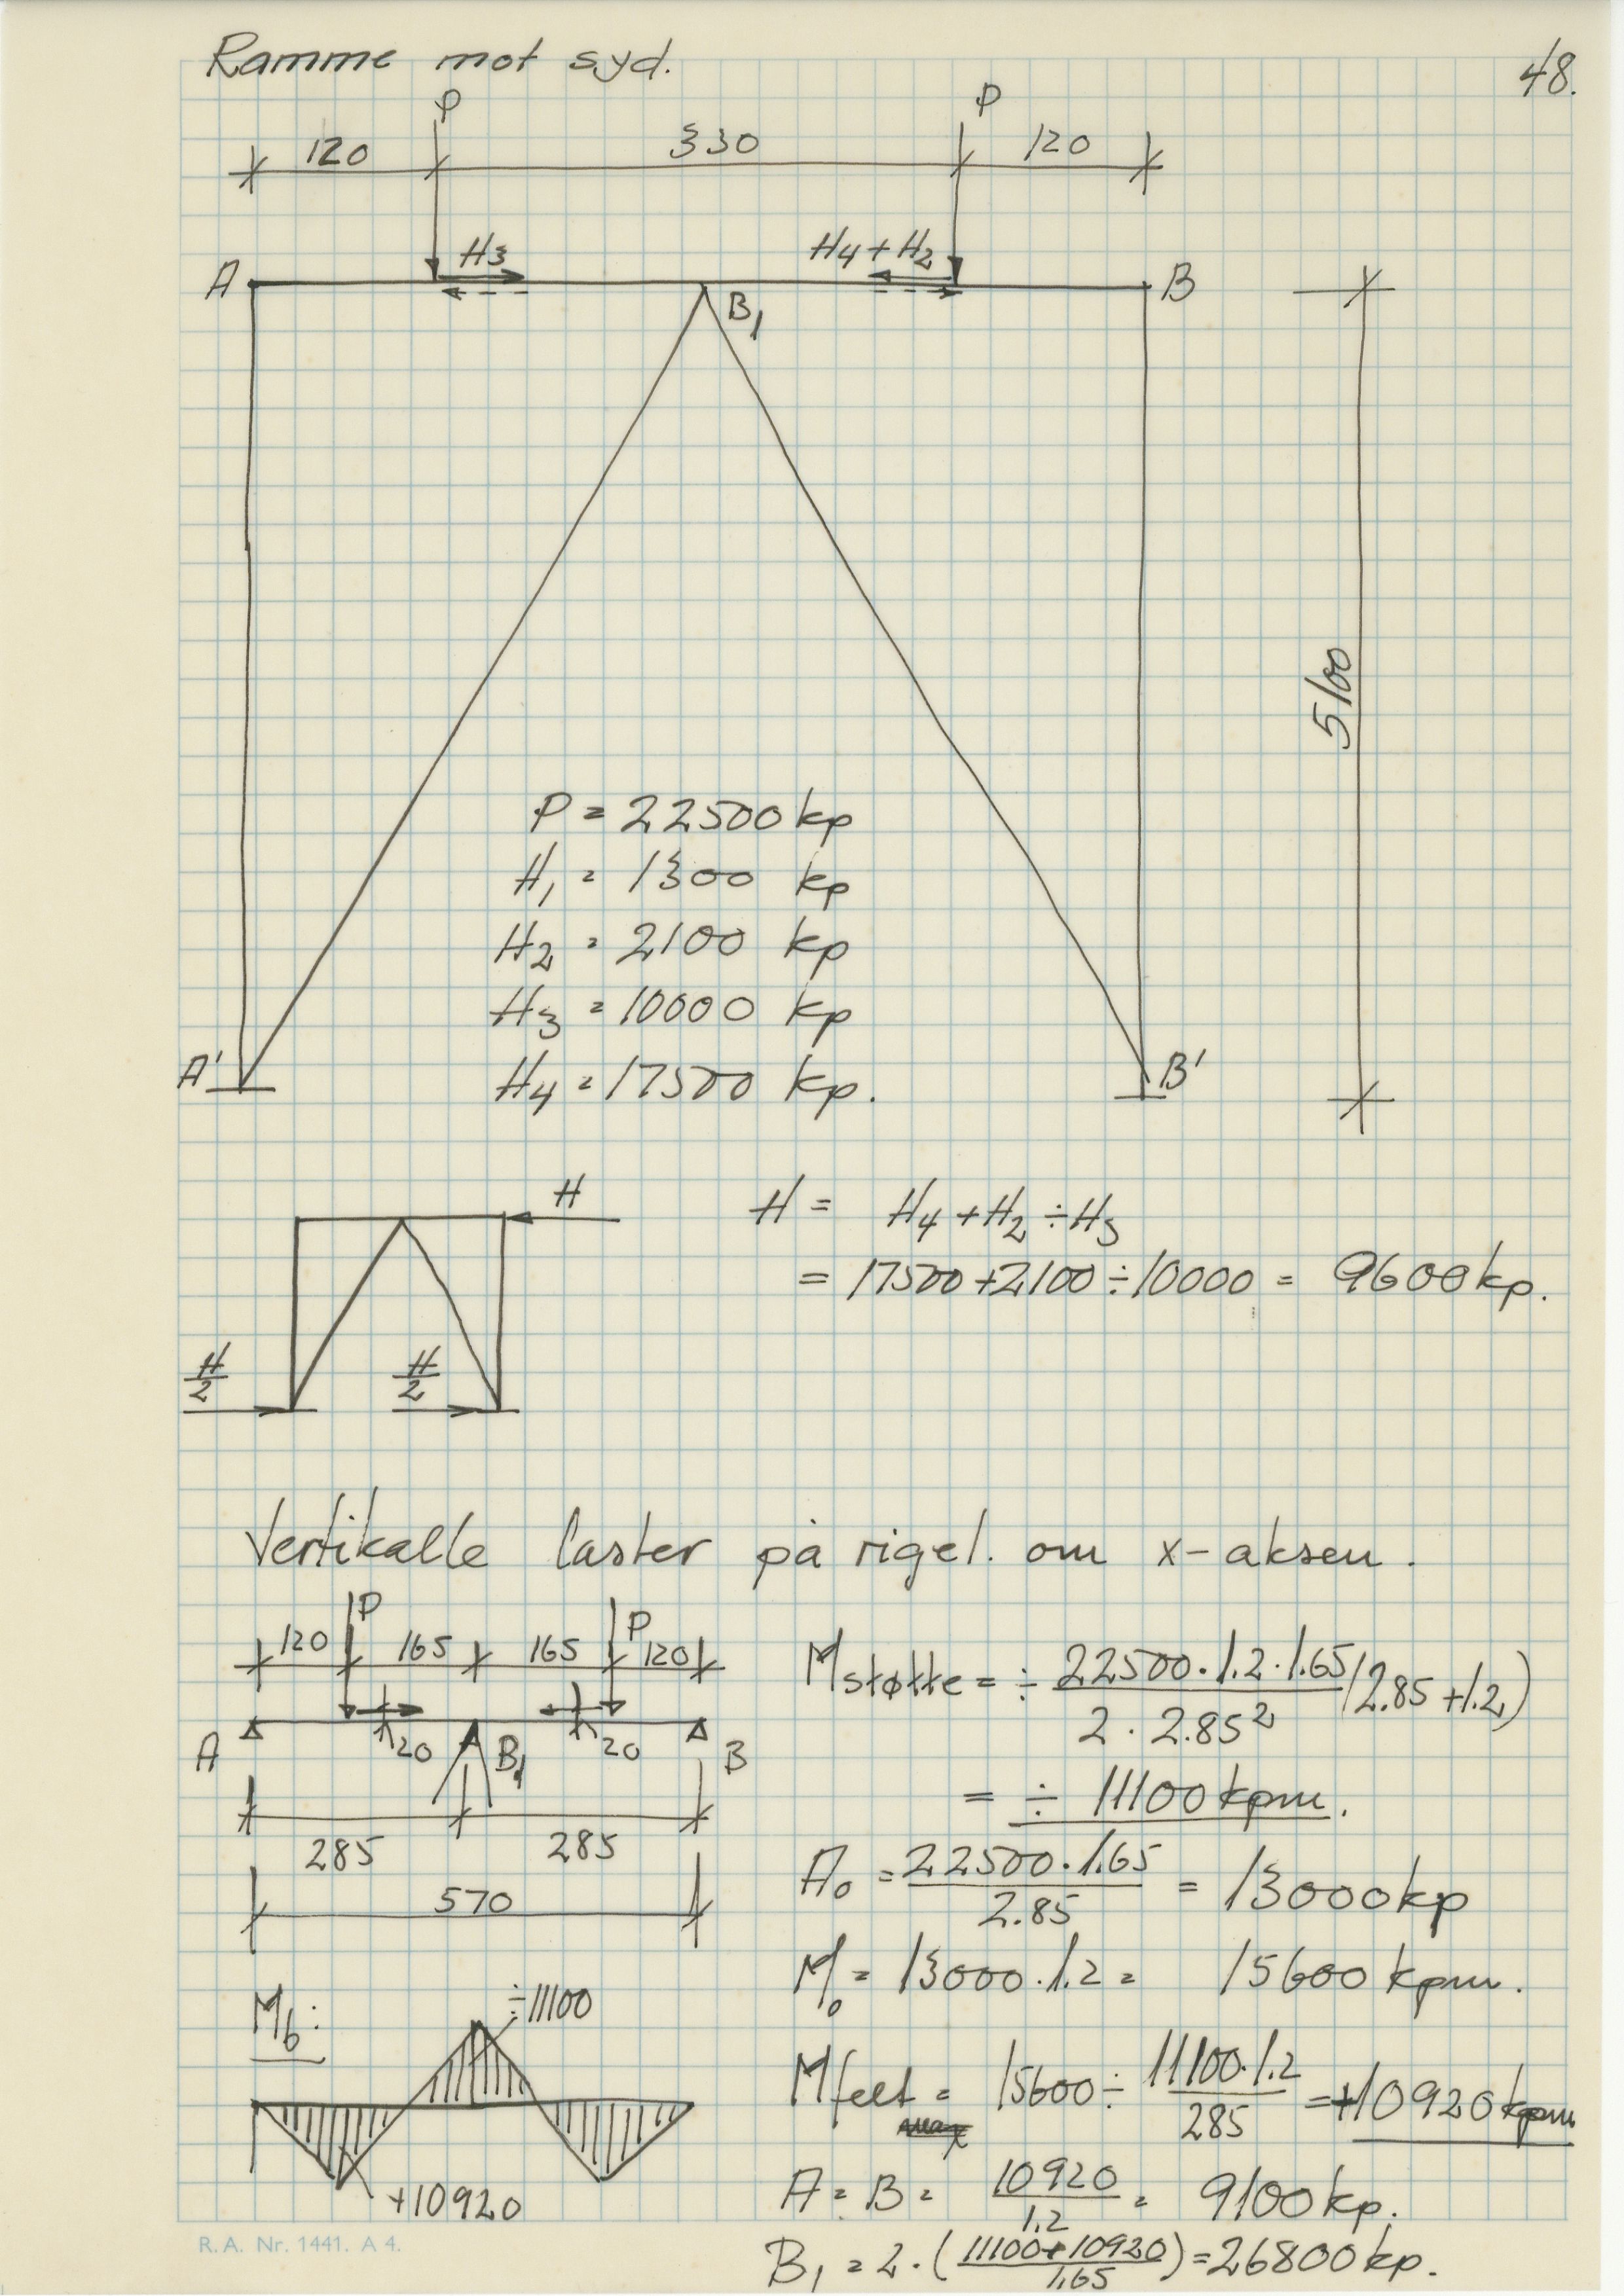 Ramme mot syd.
48.
P P
120 330 120
H3 H4+H2
A B
B1
5100
P = 22500 kp
H1 = 1300 kp
H2 = 2100 kp
H3 = 10000 kp
H4 = 17500 kp.
A' B'
H
H/2 H/2
H = H4 + H2 ÷ H3
= 17500 + 2100 ÷ 10000 = 9600 kp.
Vertikalle laster på rigel. om x-aksen.
P P
120 165 165 120
20 20
A B1 B
285 285
570
Mstøtte = ÷ 22500 · 1.2 · 1.65 / 2 · 2.85² (2.85 + 1.2)
= ÷ 11100 kpm.
A0 = 22500 · 1.65 / 2.85 = 13000 kp
M0 = 13000 · 1.2 = 15600 kpm.
Mb:
÷11100
+10920
Mfelt = 15600 ÷ 11100 · 1.2 / 285 = +10920 kpm
A = B = 10920 / 1.2 = 9100 kp.
B1 = 2 · (11100 + 10920 / 1.65) = 26800 kp.
R.A. Nr. 1441. A 4.